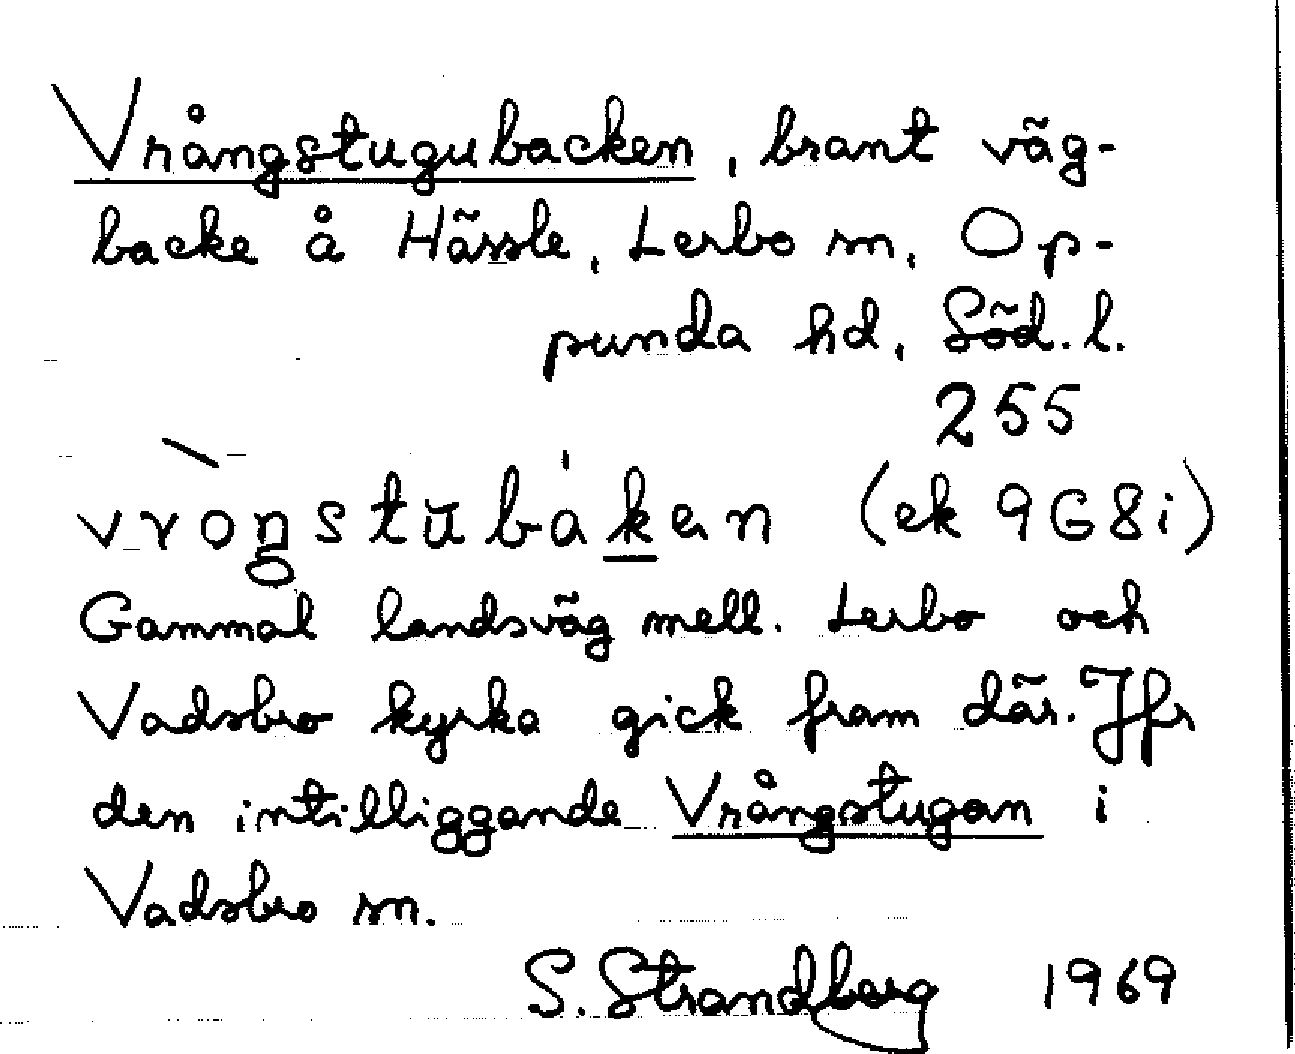 Vrångstugubacken, brant väg-
backe å Hässle, Lerbo sn, Op-
punda hd, Söd. l.
255
vròŋstŭbáken (ek 9G8i)
Gammal landsväg mell. Lerbo och
Vadsbro kyrka gick fram där. Jfr
den intilliggande Vrångstugan i
Vadsbro sn.
S. Strandberg 1969